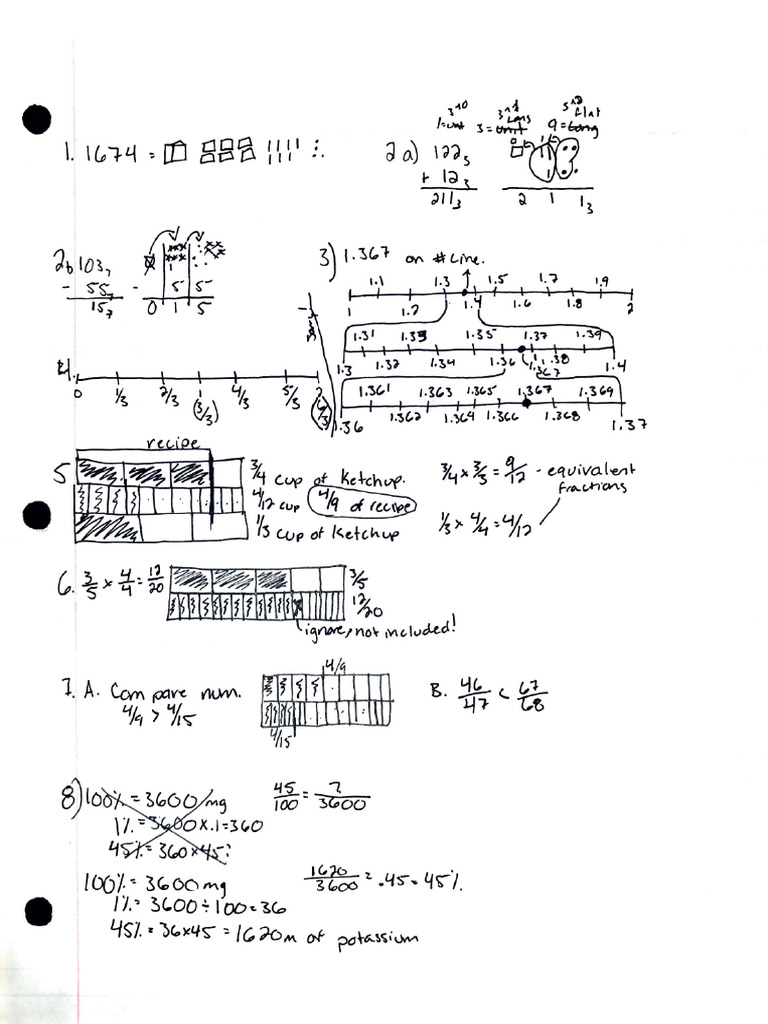 1. 1674 =
2a) 122₃
+ 12₃
211₃
2 1 1₃
3rd
3rd
1=unit 3= Long 9= Flat
2b 103₇
- 55₇
15₇
-
1
5 5
0 1 5
3) 1.367 on # line.
1.1 1.3 1.5 1.7 1.9
1 1.2 1.4 1.6 1.8 2
1.31 1.33 1.35 1.37 1.39
1.3 1.32 1.34 1.36 1.367 1.38 1.4
1.361 1.363 1.365 1.367 1.369
1.36 1.362 1.364 1.366 1.368 1.37
4.
0 1/3 2/3 1 4/3 5/3 2
(3/3) (6/3)
recipe
5 3/4 cup of Ketchup.
4/12 cup 4/9 of recipe
1/3 cup of Ketchup
3/4 × 3/3 = 9/12 - equivalent
fractions
1/3 × 4/4 = 4/12
6. 3/5 × 4/4 = 12/20
3/5
12/20
ignore, not included!
7. A. Compare num.
4/9 > 4/15
4/9
4/15
B. 46/47 < 67/68
8) 100% = 3600 mg
1% = 3600 × .1 = 360
45% = 360 × 45?
45/100 = ?/3600
100% = 3600 mg
1% = 3600 ÷ 100 = 36
45% = 36×45 = 1620m of potassium
1620/3600 = .45 = 45%.